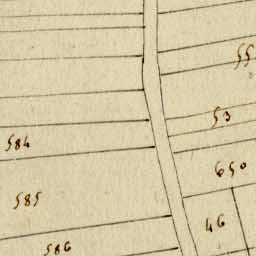 55
53
584
650
585
46
586